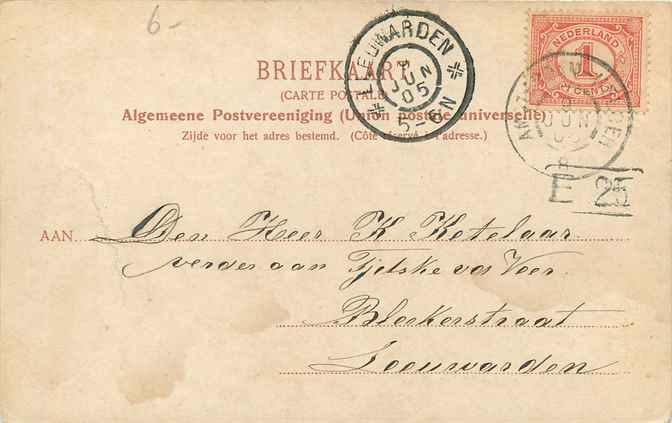 6-
NEDERLAND
1
CENT
LEEUWARDEN
9
JUN
05
5-6N
BRIEFKAART
(CARTE POSTALE)
Algemeene Postvereeniging (Union postale universelle)
Zijde voor het adres bestemd. (Côté réservé à l'adresse.)
JUN
8
E 25
AAN Den Heer K Ketelaar
verdes aan Tjetske vos Veer.
Bleekerstraat
Leeuwarden